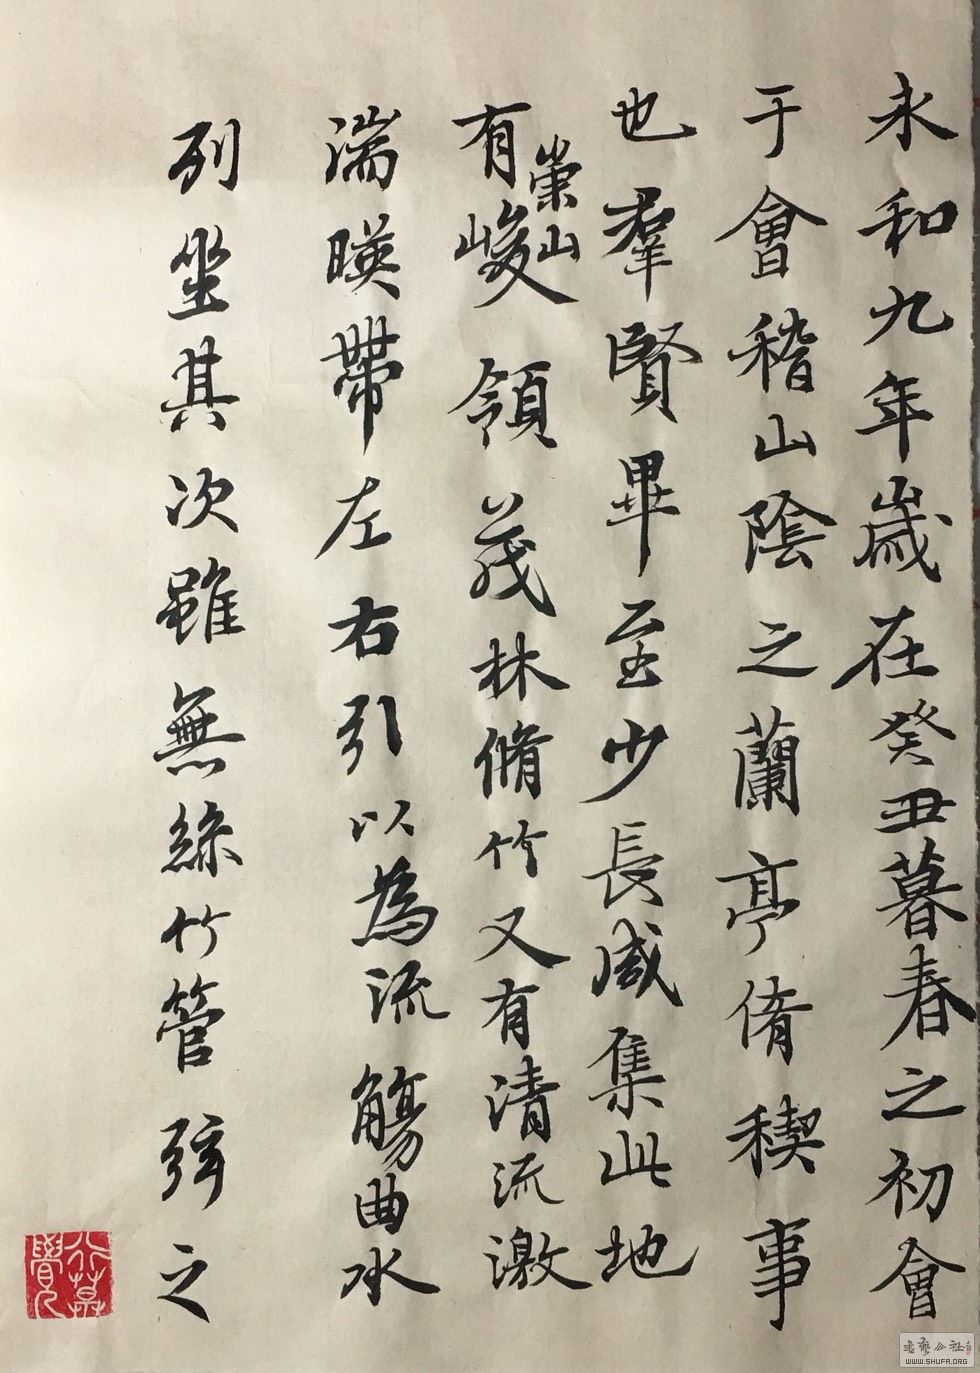 永和九年歲在癸丑暮春之初會
于會稽山陰之蘭亭脩稧事
也羣賢畢至少長咸集此地
有崇山峻領茂林脩竹又有清流激
湍暎帶左右引以為流觴曲水
列坐其次雖無絲竹管弦之
WWW.SHUFA.ORG